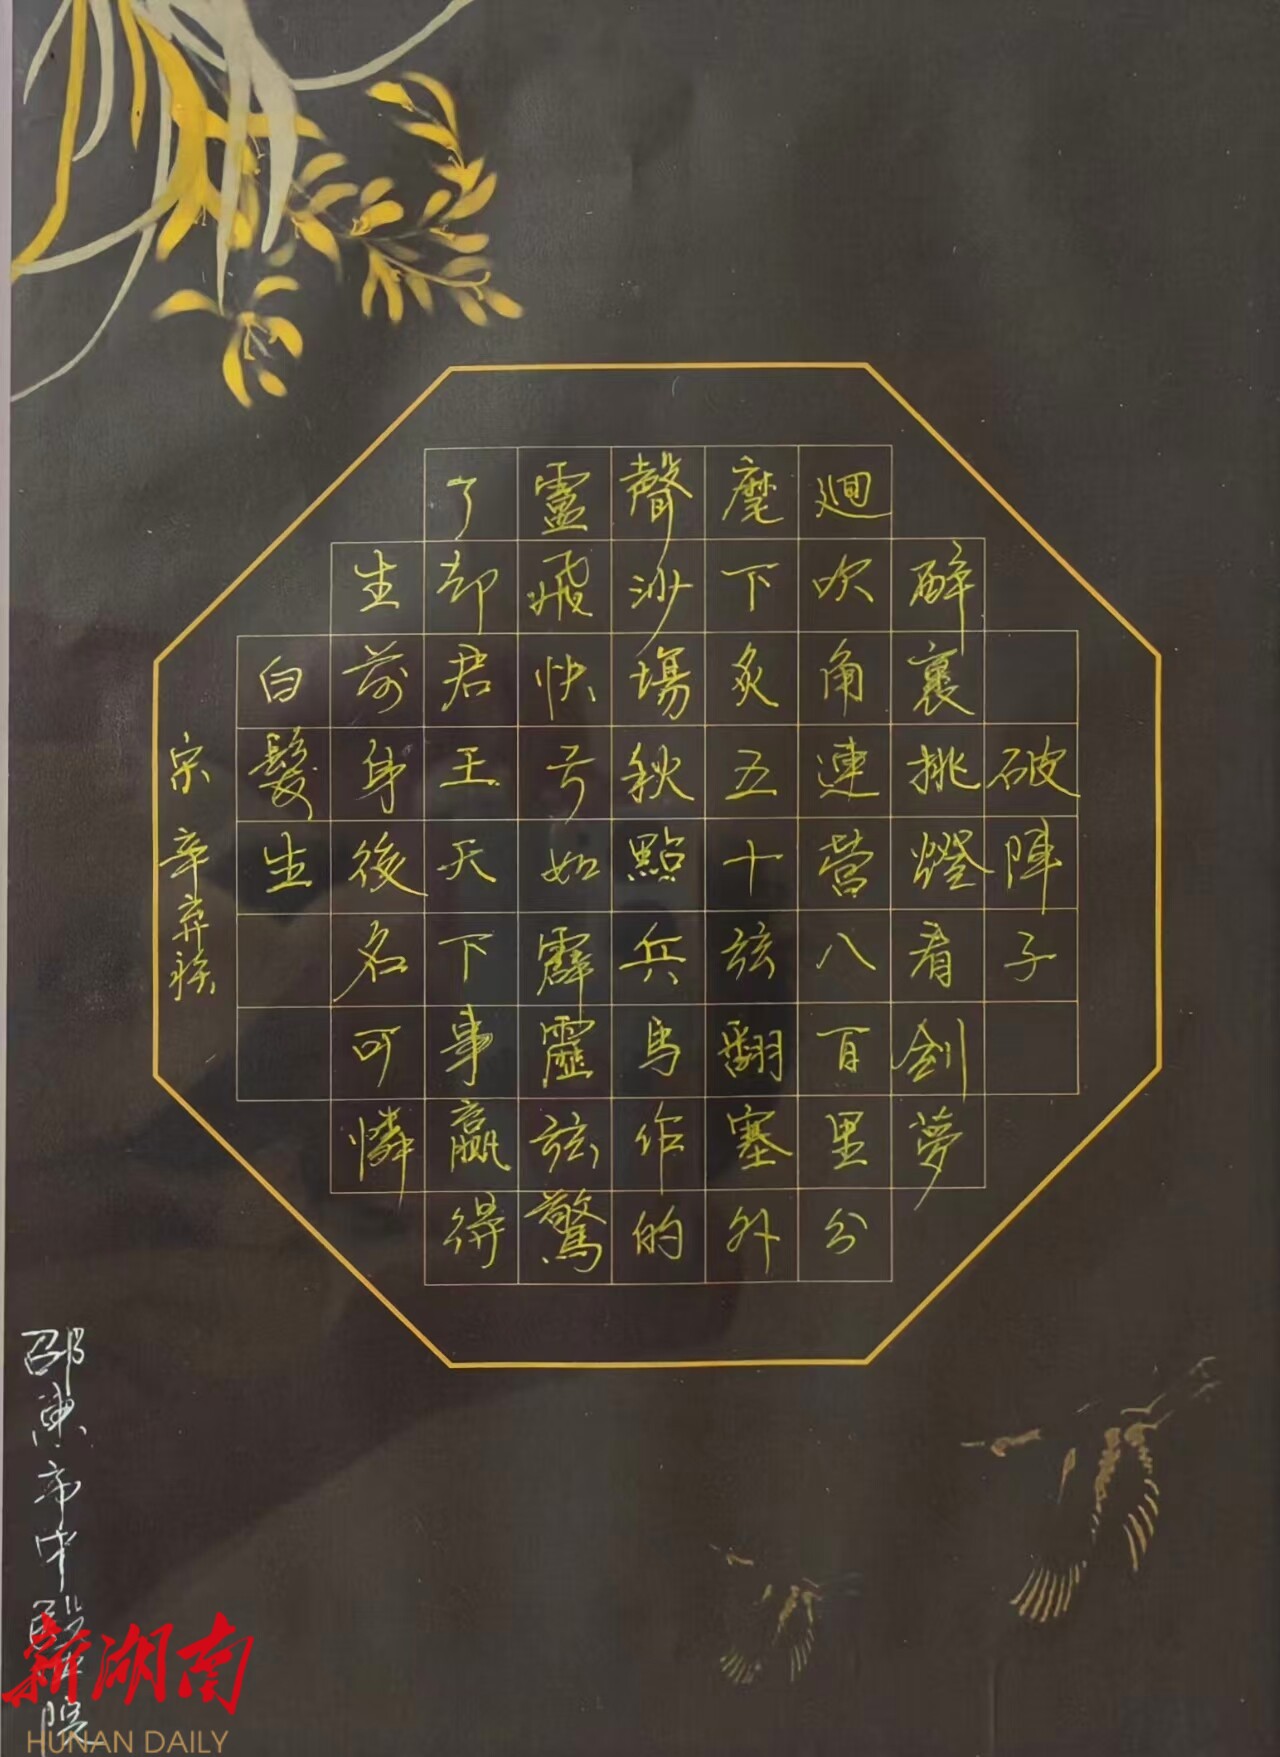 破陣子
醉裏挑燈看劍夢
廻吹角連營八百里分
麾下炙五十弦翻塞外
聲沙場秋點兵馬作的
靈飛快弓如霹靂弦驚
了却君王天下事贏得
生前身後名可憐
白髮生
宋 辛弃疾
邵東市中醫院
新湖南
HUNAN DAILY